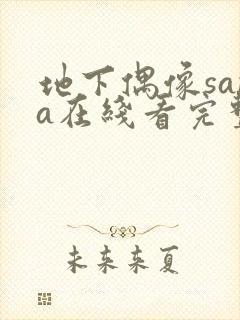 地下偶像sa
a在线看完
未来来夏